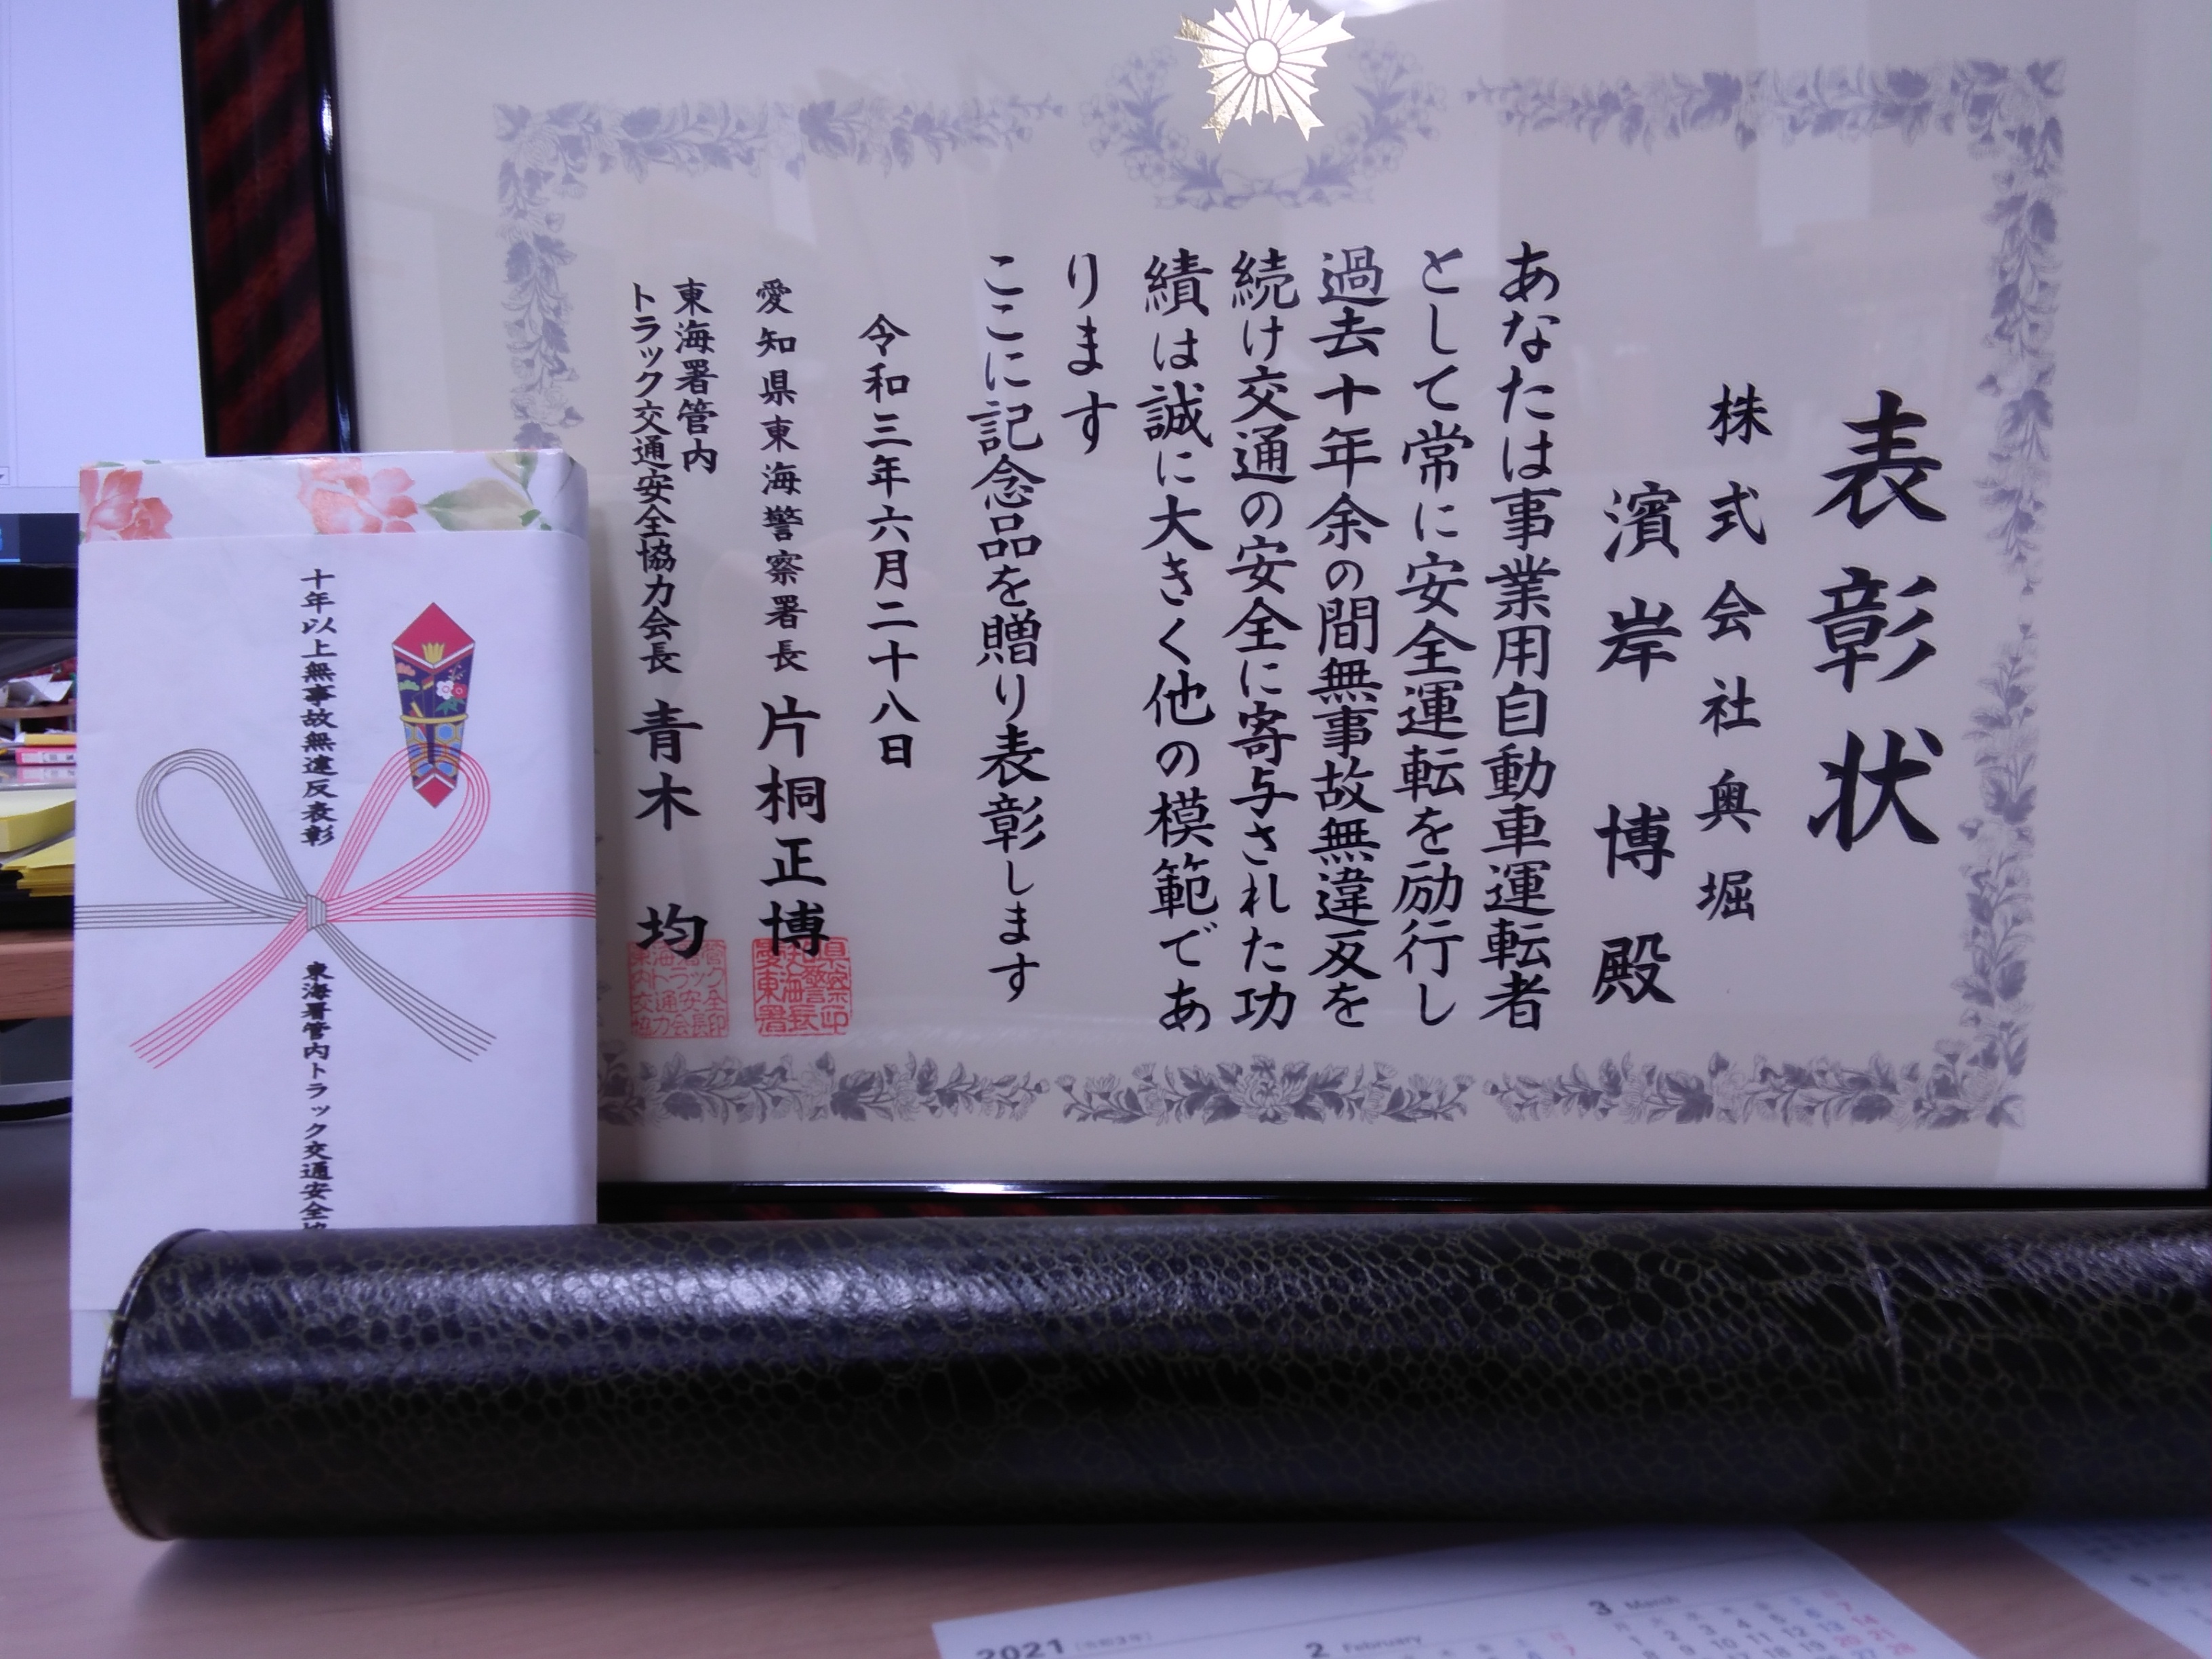 表彰状
株式会社奥堀
濱岸 博殿
あなたは事業用自動車運転者
として常に安全運転を励行し
過去十年余の間無事故無違反を
続け交通の安全に寄与された功
績は誠に大きく他の模範であ
ります
ここに記念品を贈り表彰します
令和三年六月二十八日
愛知県東海警察署長 片桐正博
東海署管内
トラック交通安全協力会長 青木 均
十年以上無事故無違反表彰
東海署管内トラック交通安全協
2021
2 February
3 March